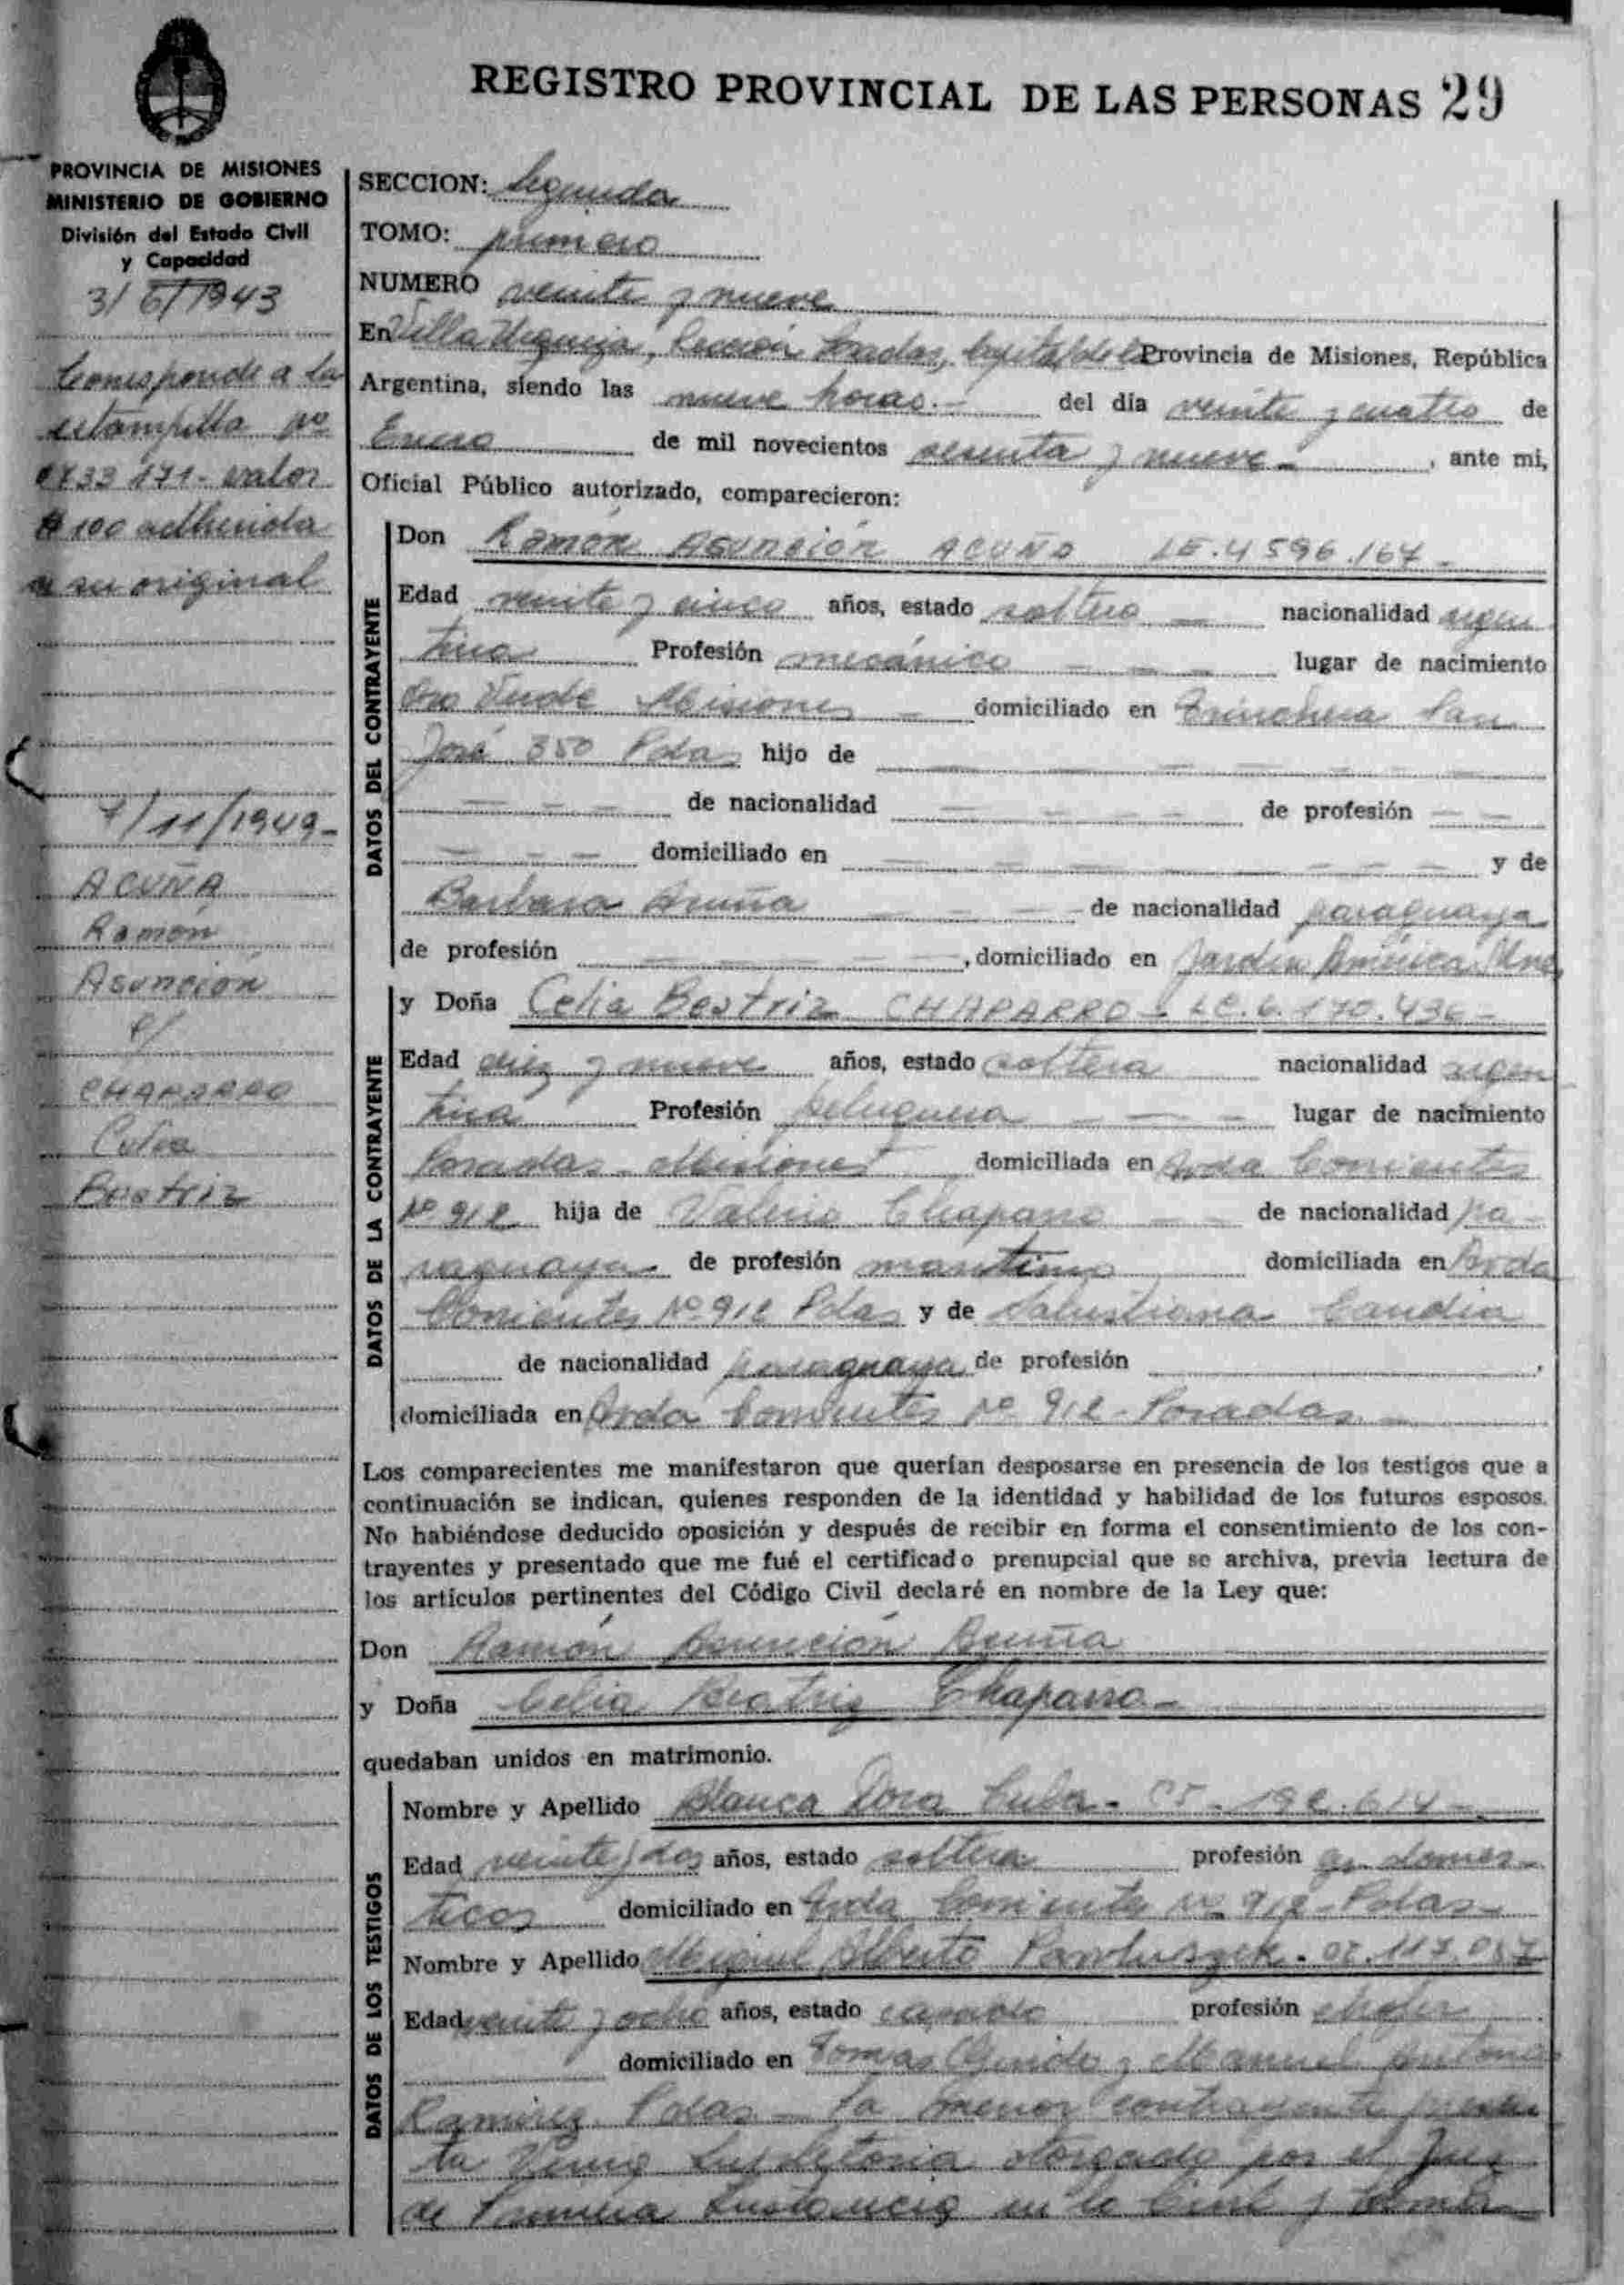 REGISTRO PROVINCIAL DE LAS PERSONAS 29
PROVINCIA DE MISIONES
MINISTERIO DE GOBIERNO
División del Estado Civil
y Capacidad
3/6/1943
Corresponde a la
estampilla nº
171- valor
$ 100 adherida
a su original
7/11/1949-
ACUÑA
Ramón
Asunción
c/
CHAPARRO
Celia
Beatriz
SECCION: Segunda
TOMO: primero
NUMERO veinte y nueve
En Villa Urquiza, Sección Posadas, Capital de la Provincia de Misiones, República
Argentina, siendo las nueve horas.- del día veinte y cuatro de
Enero de mil novecientos sesenta y nueve - , ante mi,
Oficial Público autorizado, comparecieron:
DATOS DEL CONTRAYENTE
Don Ramón Asunción ACUÑA LE.4596.167-
Edad veinte y cinco años, estado soltero - nacionalidad argen
tina Profesión mecánico - - - lugar de nacimiento
Oro Verde Misiones - domiciliado en Trinchera San
José 350 Pdas hijo de - - - - - -
- - - - de nacionalidad - - - - de profesión - -
- - - domiciliado en - - - - - - y de
Barbara Acuña - - - de nacionalidad paraguaya
de profesión - - - - - , domiciliado en Jardín América Mnes
DATOS DE LA CONTRAYENTE
y Doña Celia Beatriz CHAPARRO - LC.6.170.436-
Edad diez y nueve años, estado soltera nacionalidad argen
tina Profesión peluquera - - - lugar de nacimiento
Posadas - Misiones domiciliada en Avda Corrientes
Nº 912 hija de Valerio Chaparro - - de nacionalidad pa-
raguaya- de profesión maritimo domiciliada en Avda
Corrientes Nº 912 Pdas y de Salustiana Candia
de nacionalidad paraguaya de profesión ,
domiciliada en Avda Corrientes Nº 912 - Posadas -
Los comparecientes me manifestaron que querían desposarse en presencia de los testigos que a
continuación se indican, quienes responden de la identidad y habilidad de los futuros esposos.
No habiéndose deducido oposición y después de recibir en forma el consentimiento de los con-
trayentes y presentado que me fué el certificado prenupcial que se archiva, previa lectura de
los artículos pertinentes del Código Civil declaré en nombre de la Ley que:
Don Ramón Asunción Acuña
y Doña Celia Beatriz Chaparro -
quedaban unidos en matrimonio.
DATOS DE LOS TESTIGOS
Nombre y Apellido Blanca Dora - 192.614-
Edad veinte y dos años, estado soltera profesión q. domes-
ticos domiciliado en Avda Corrientes Nº 912 - Pdas -
Nombre y Apellido Miguel Alberto
Edad veinte y ocho años, estado casado profesión chofer
domiciliado en Tomas Guido y Manuel Antonio
Ramirez Pdas - La menor contrayente presen
ta Venia Supletoria otorgado por el Juez
de Primera Instancia en lo Civil y Comer